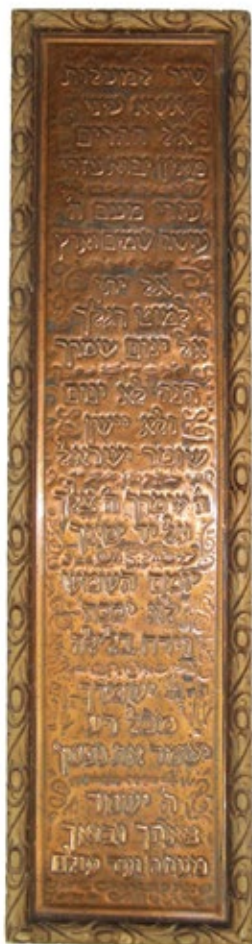 שיר למעלות
אשא עיני
אל ההרים
מאין יבוא עזרי
עזרי מעם ה'
עושה שמים וארץ
אל יתן
למוט רגלך
אל ינום שמרך
הנה לא ינום
ולא יישן
שומר ישראל
ה' שמרך ה' צלך
על יד ימינך
יומם השמש
לא יככה
וירח בלילה
ה' ישמרך
מכל רע
ישמור את נפשך
ה' ישמור
צאתך ובואך
מעתה ועד עולם